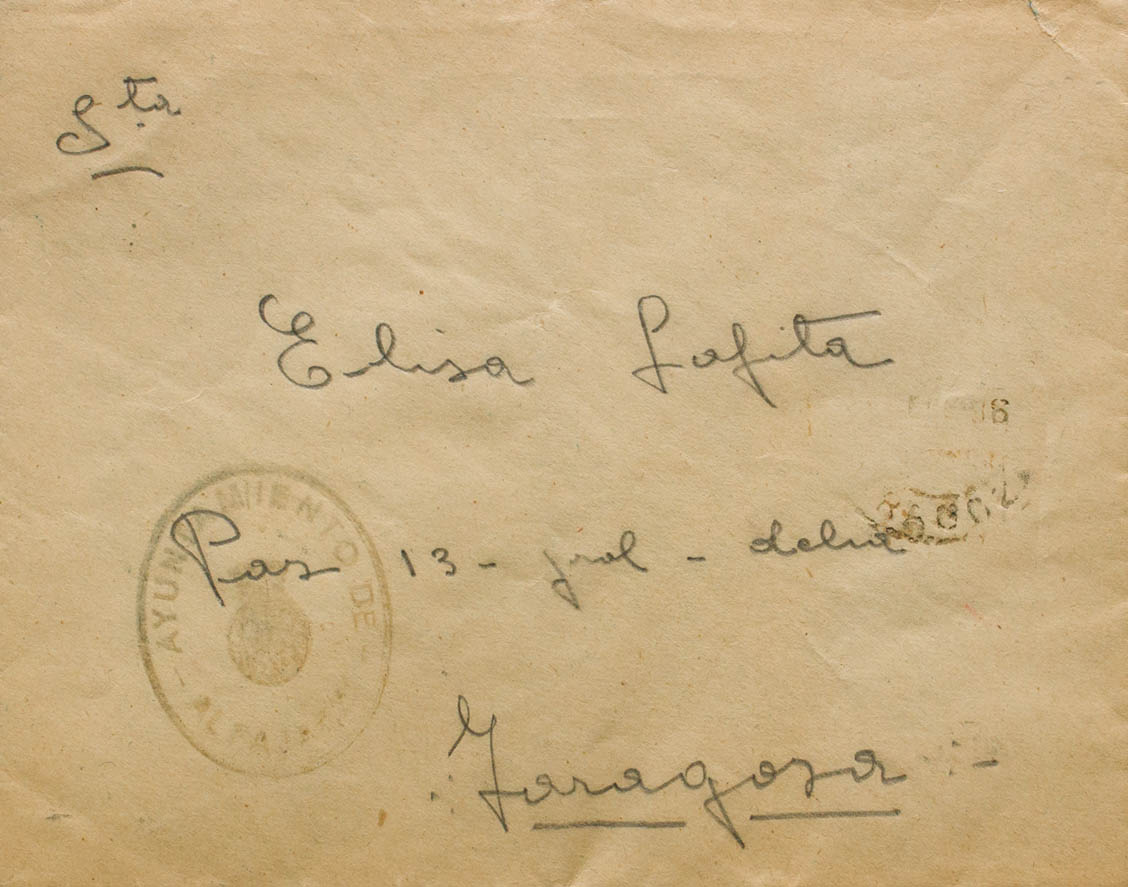 Sta
Elisa Lafita
Paz 13 - pral - dcha
Zaragoza
AYUNTAMIENTO DE
16